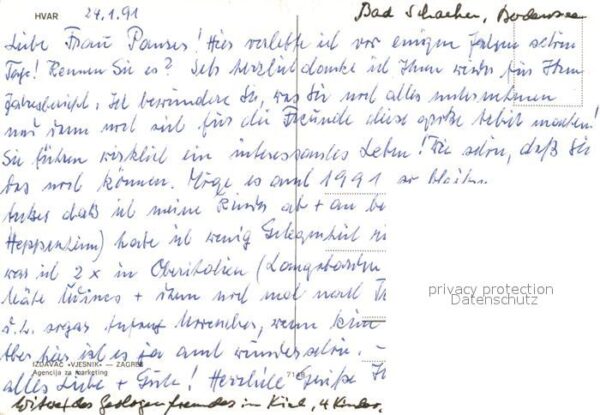 HVAR 24.1.91 Bad Schachen, Bodensee
Liebe Frau Panses! Hier verlebte ich vor einigen Jahren schöne
Tage! Kennen Sie es? Sehr herzlich danke ich Ihnen wieder für Ihren
Jahresbericht, ich bewundere Sie, was Sie noch alles unternehmen
und dann noch sich für die Freunde diese große Arbeit machen!
Sie führen wirklich ein interessantes Leben! Wie schön, daß Sie
das noch können. Möge es auch 1991 so bleiben.
Außer daß ich meine Kinder ab + an be
Heppenheim) habe ich wenig Gelegenheit
was ich 2 x in Oberitalien (Langobarden
noch mal nach
u.U. sogar Anfang November, wenn
Aber hier ist es ja auch wunderschön. -
IZDAVAČ »VJESNIK« — ZAGREB
Agencija za marketing
alles Liebe + Gute! Herzliche Grüße
Witwe des Geologenfreundes in Kiel, 4 Kinder.
privacy protection
Datenschutz